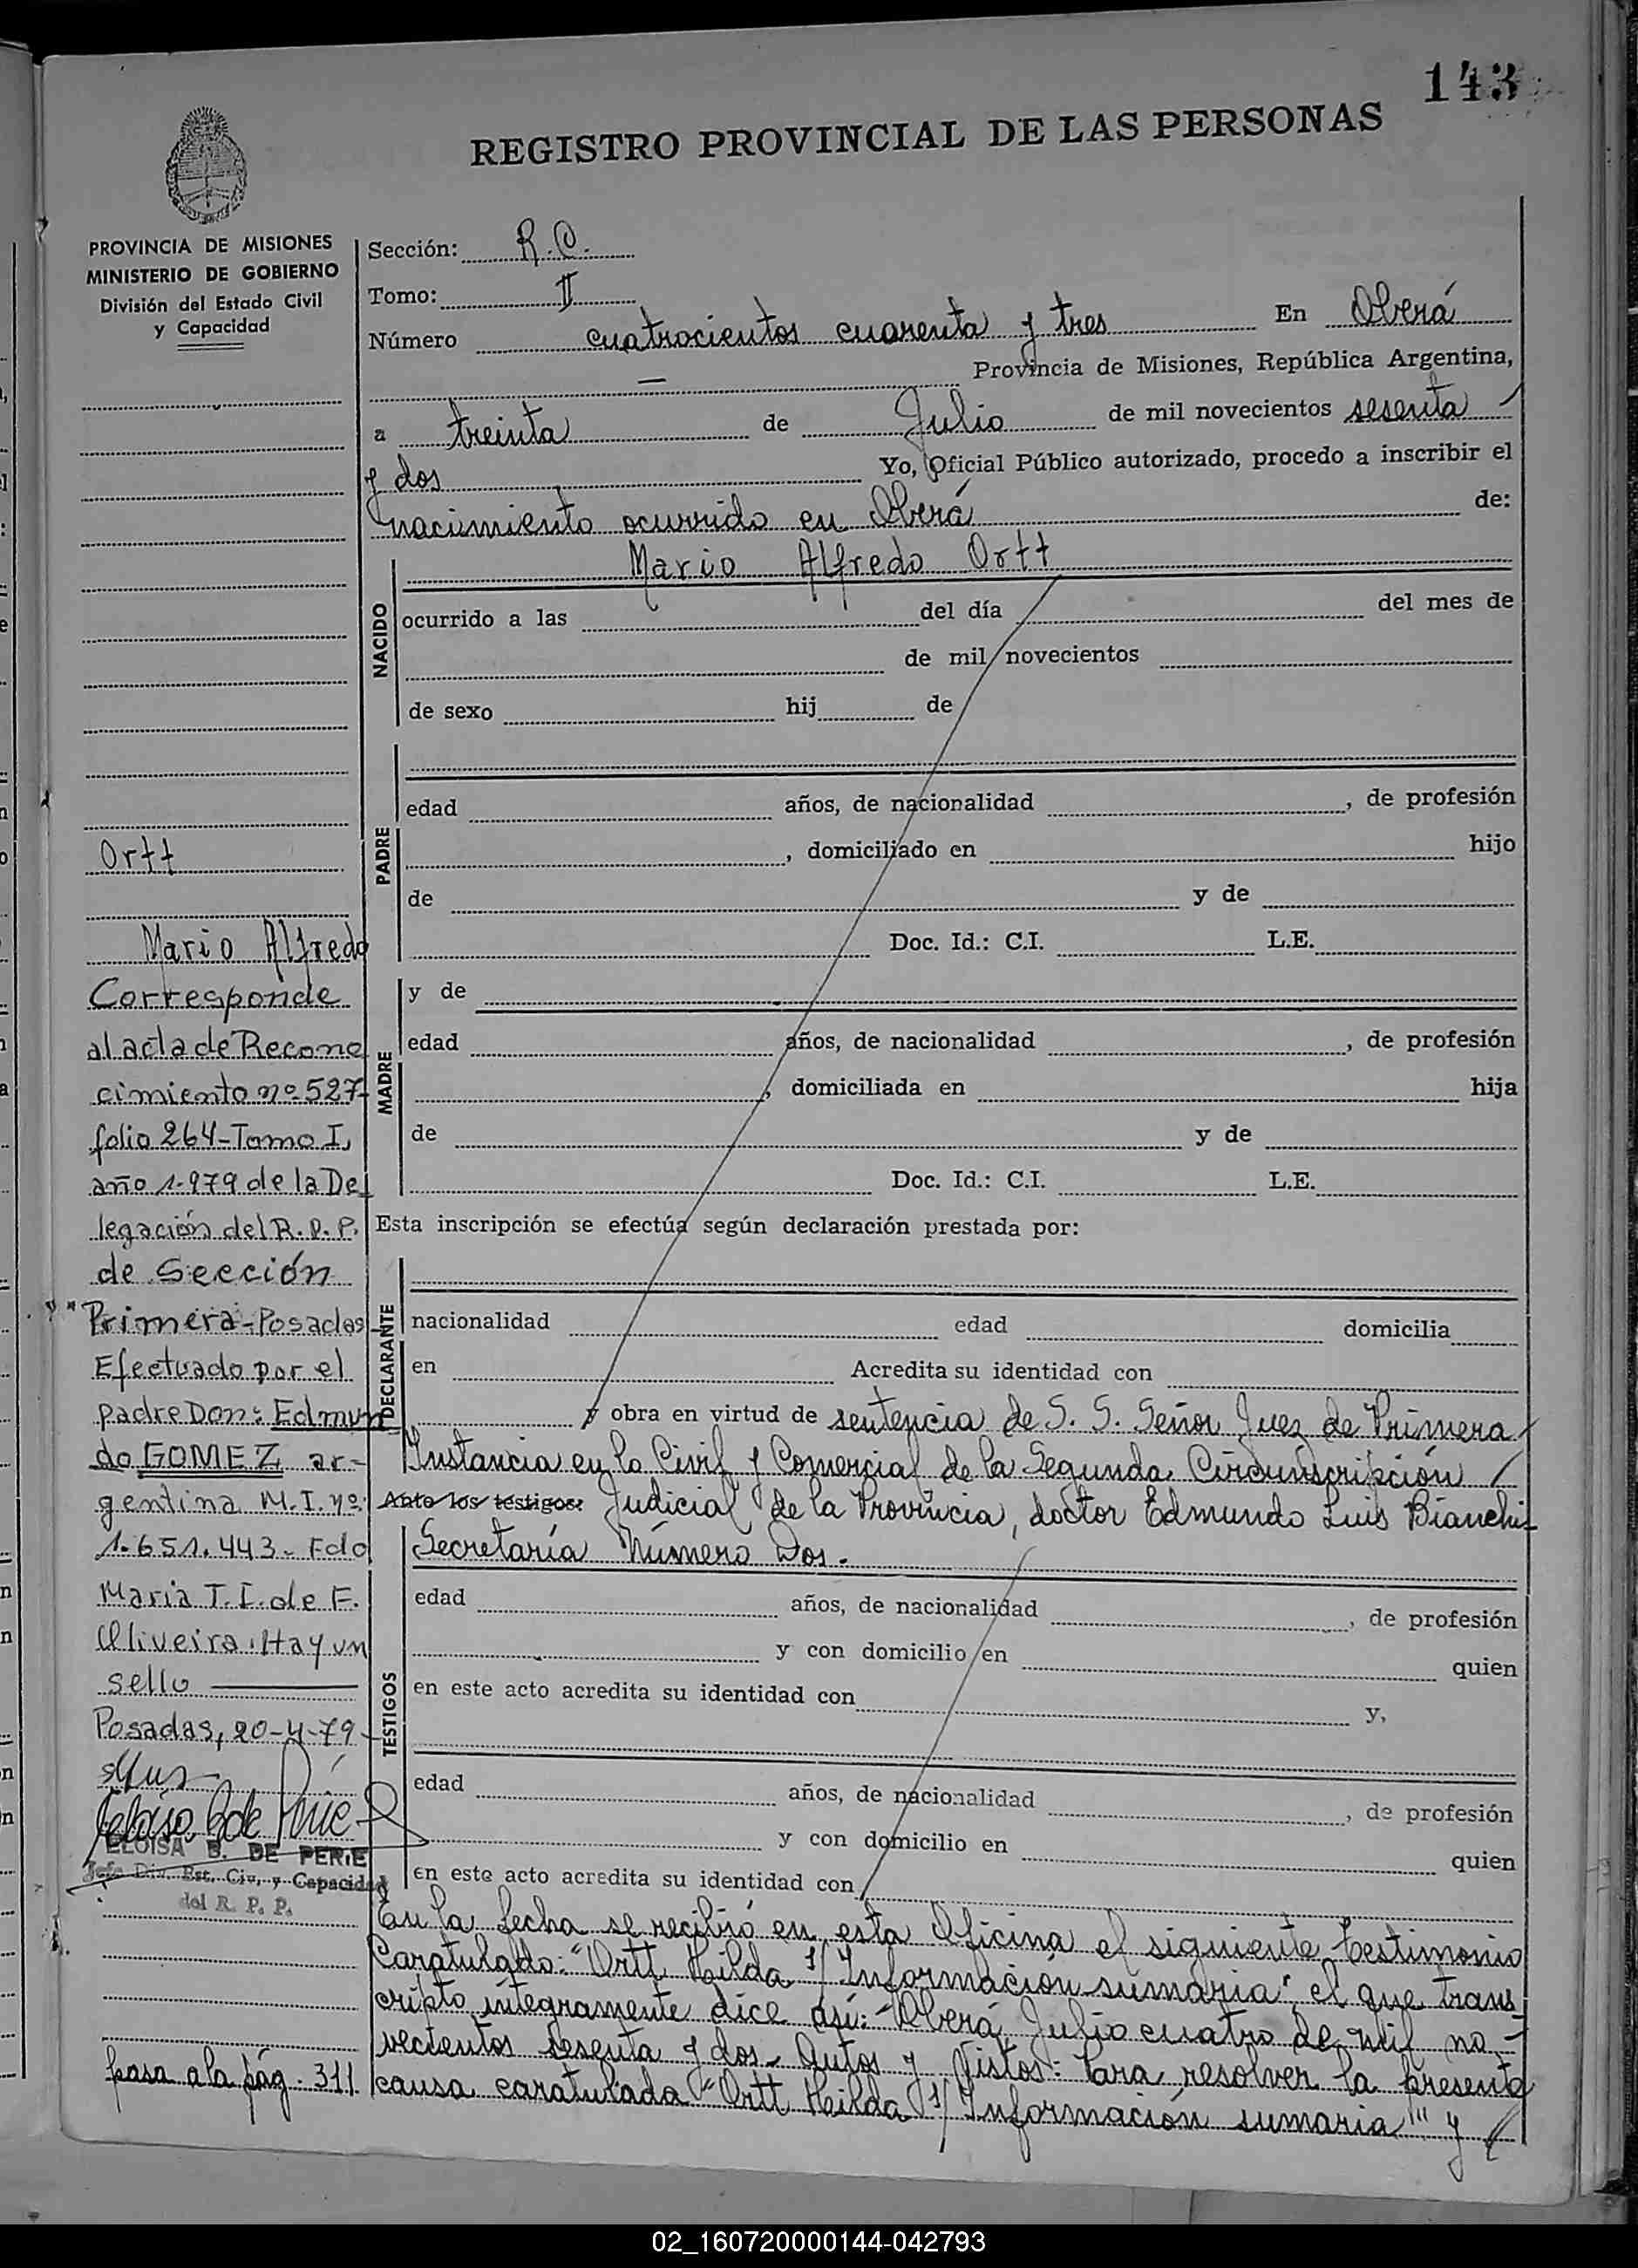 143
REGISTRO PROVINCIAL DE LAS PERSONAS
PROVINCIA DE MISIONES
MINISTERIO DE GOBIERNO
División del Estado Civil
y Capacidad
Sección: R.C.
Tomo: II
Número cuatrocientos cuarenta y tres En Oberá
— Provincia de Misiones, República Argentina,
a treinta de Julio de mil novecientos sesenta
y dos Yo, Oficial Público autorizado, procedo a inscribir el
nacimiento ocurrido en Oberá de:
Mario Alfredo Ortt
NACIDO
ocurrido a las del día del mes de
de mil novecientos
de sexo hij de
PADRE
edad años, de nacionalidad , de profesión
, domiciliado en hijo
de y de
Doc. Id.: C.I. L.E.
MADRE
y de
edad años, de nacionalidad , de profesión
, domiciliada en hija
de y de
Doc. Id.: C.I. L.E.
Esta inscripción se efectúa según declaración prestada por:
DECLARANTE
nacionalidad edad domicilia
en Acredita su identidad con
y obra en virtud de sentencia de S. S. Señor Juez de Primera
Instancia en lo Civil y Comercial de la Segunda Circunscripción
Ante los testigos: Judicial de la Provincia, doctor Edmundo Luis Bianchi
Secretaría Número Dos.
TESTIGOS
edad años, de nacionalidad , de profesión
y con domicilio en quien
en este acto acredita su identidad con y,
edad años, de nacionalidad , de profesión
y con domicilio en quien
en este acto acredita su identidad con
En la fecha se recibió en esta Oficina el siguiente testimonio
Caratulado: "Ortt Hilda s/ Información sumaria", el que trans
cripto integramente dice así: "Oberá, Julio cuatro de mil no-
vecientos sesenta y dos- Autos y Vistos: Para resolver la presente
causa caratulada "Ortt Hilda s/ Información sumaria" y
Ortt
Mario Alfredo
Corresponde
al acta de Recono
cimiento nº 527-
folio 264-Tomo I,
año 1.979 de la De
legación del R.P.P.
de Sección
Primera-Posadas-
Efectuado por el
padre Don: Edmun
do GOMEZ ar-
gentino M.I. nº:
1.651.443- Fdo
Maria T. I. de F.
Oliveira. Hay un
sello
Posadas, 20-4-79-
ELOISA B. DE PERIE
Jefe Div. Est. Civ. y Capacidad
del R. P. P.
pasa a la pág. 311
02_160720000144-042793